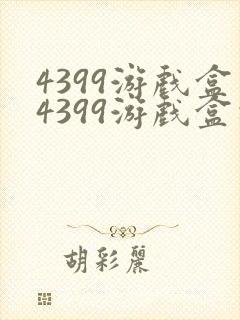 4399游戏盒
4399游戏盒
胡彩丽